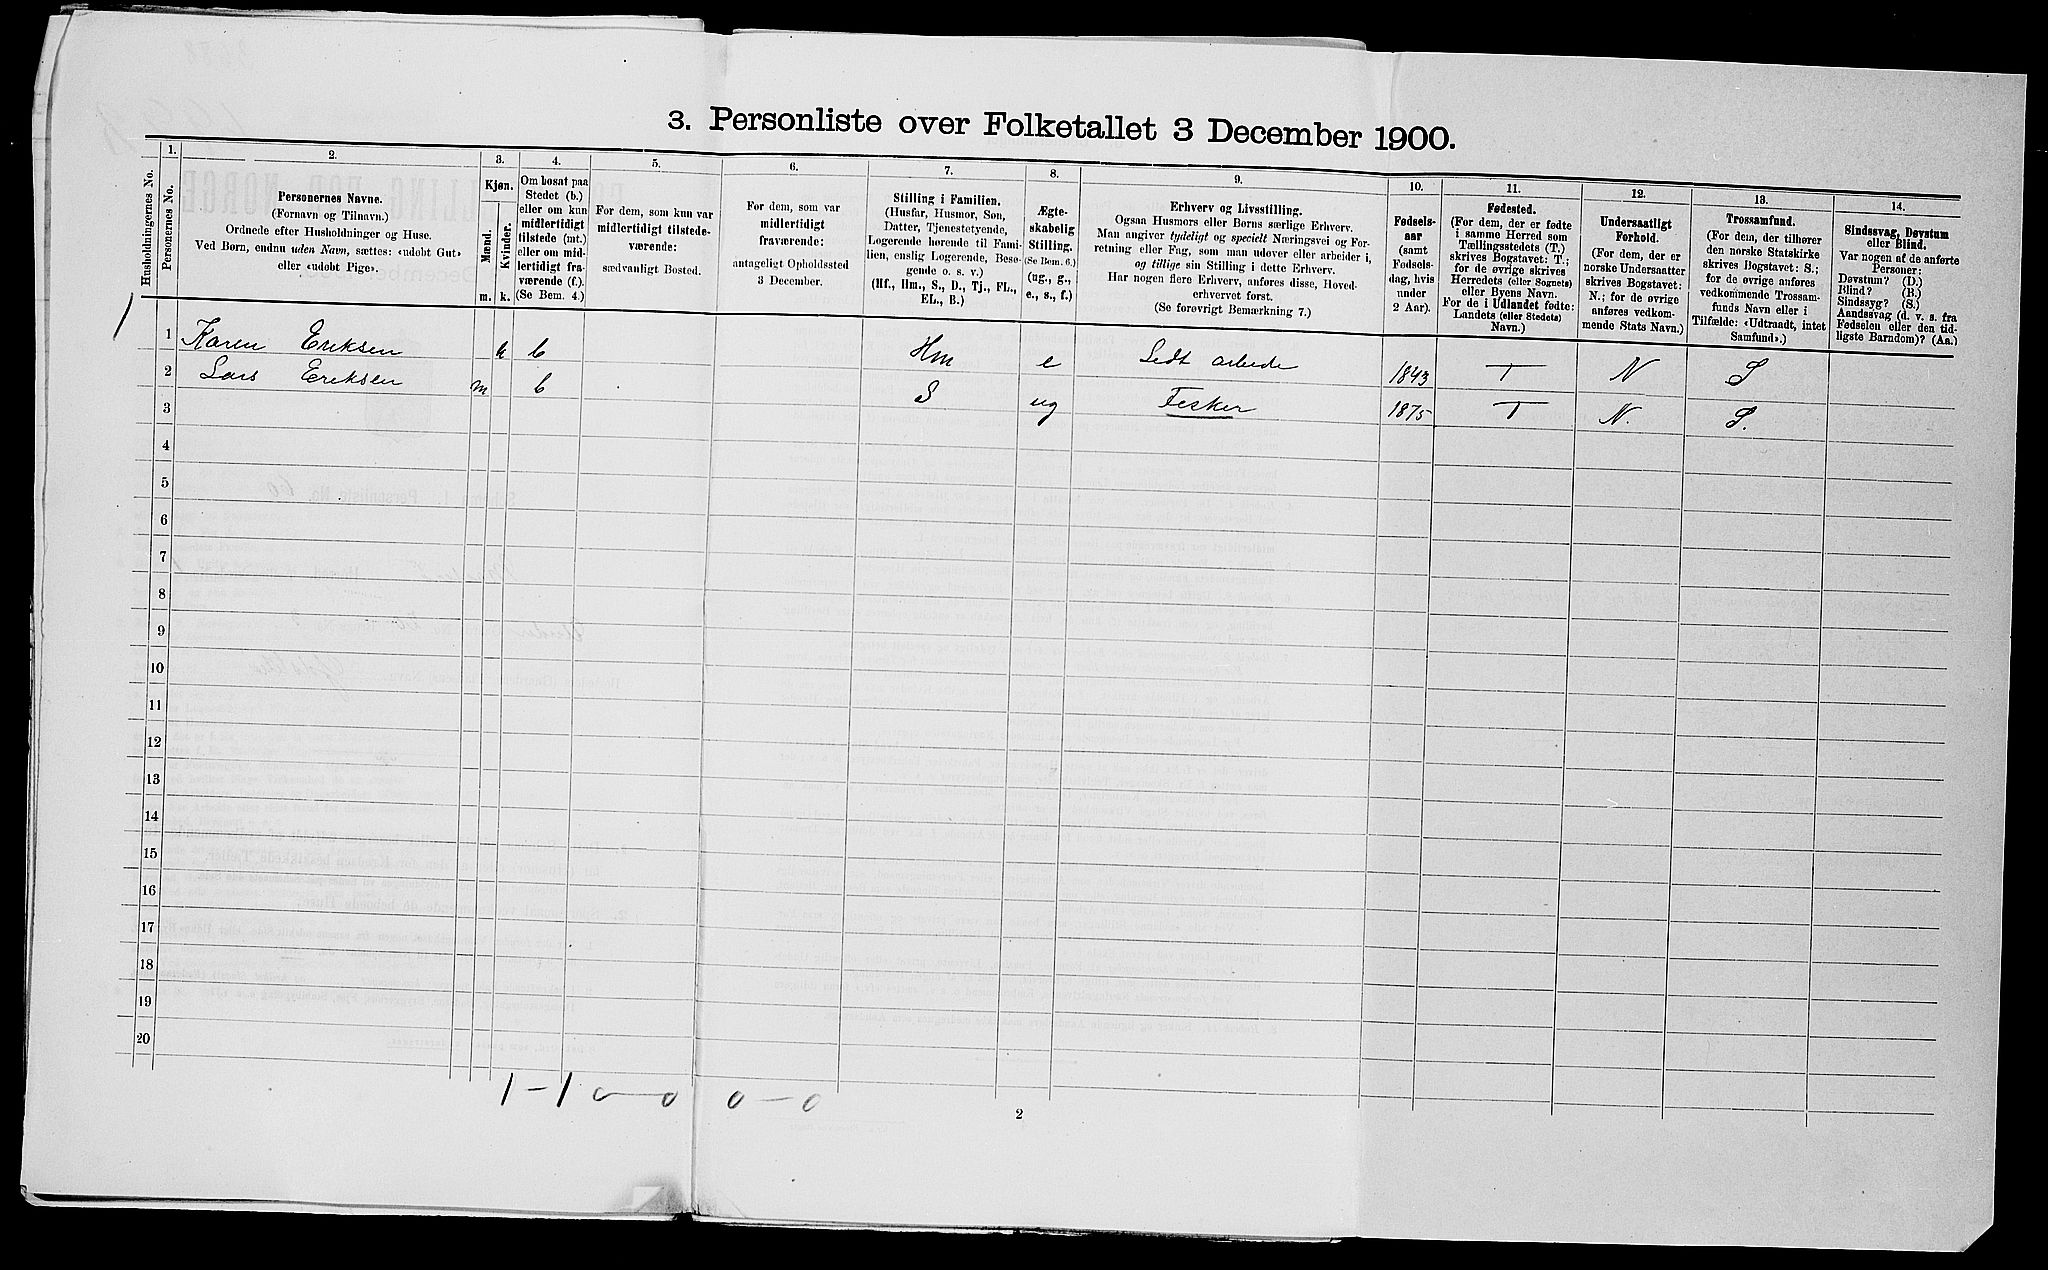 3. Personliste over Folketallet 3 December 1900.
Husholdningernes No.
1.
Personernes No.
2.
Personernes Navne.
(Fornavn og Tilnavn.)
Ordnede efter Husholdninger og Huse.
Ved Børn, endnu uden Navn, sættes: «udøbt Gut»
eller «udøbt Pige».
3.
Kjøn.
Mænd.
Kvinder.
m.
k.
4.
Om bosat paa
Stedet (b.)
eller om kun
midlertidigt
tilstede (mt.)
eller om mid-
lertidigt fra-
værende (f.).
(Se Bem. 4.)
5.
For dem, som kun var
midlertidigt tilstede-
værende:
sædvanligt Bosted.
6.
For dem, som var
midlertidigt
fraværende:
antageligt Opholdssted
3 December.
7.
Stilling i Familien.
(Husfar, Husmor, Søn,
Datter, Tjenestetyende,
Logerende hørende til Fami-
lien, enslig Logerende, Besø-
gende o. s. v.)
(Hf., Hm., S., D., Tj., FL.,
EL., B.)
8.
Ægte-
skabelig
Stilling.
(Se Bem. 6.)
(ug., g.,
e., s., f.)
9.
Erhverv og Livsstilling.
Ogsaa Husmors eller Børns særlige Erhverv.
Man angiver tydeligt og specielt Næringsvei og For-
retning eller Fag, som man udøver eller arbeider i,
og tillige sin Stilling i dette Erhverv.
Har nogen flere Erhverv, anføres disse, Hoved-
erhvervet først.
(Se forøvrigt Bemærkning 7.)
10.
Fødsels-
aar
(samt
Fødsels-
dag, hvis
under
2 Aar).
11.
Fødested.
(For dem, der er fødte
i samme Herred som
Tællingsstedets (T.)
skrives Bogstavet: T.;
for de øvrige skrives
Herredets (eller Sognets)
eller Byens Navn.
For de i Udlandet fødte:
Landets (eller Stedets)
Navn.)
12.
Undersaatligt
Forhold.
(For dem, der er
norske Undersaatter
skrives Bogstavet:
N.; for de øvrige
anføres vedkom-
mende Stats Navn.)
13.
Trossamfund.
(For dem, der tilhører
den norske Statskirke
skrives Bogstavet: S.;
for de øvrige anføres
vedkommende Trossam-
funds Navn eller i
Tilfælde: «Udtraadt, intet
Samfund».)
14.
Sindssvag, Døvstum
eller Blind.
Var nogen af de anførte
Personer:
Døvstum? (D.)
Blind? (B.)
Sindssyg? (S.)
Aandssvag (d. v. s. fra
Fødselen eller den tid-
ligste Barndom)? (Aa.)
1
1 Karen Eriksen k b Hm e Ledt arbede 1843 T N S
2 Lars Eriksen m b S ug Fesker 1875 T N. S.
3
4
5
6
7
8
9
10
11
12
13
14
15
16
17
18
19
20
1 - 1 0 - 0 0 - 0
2